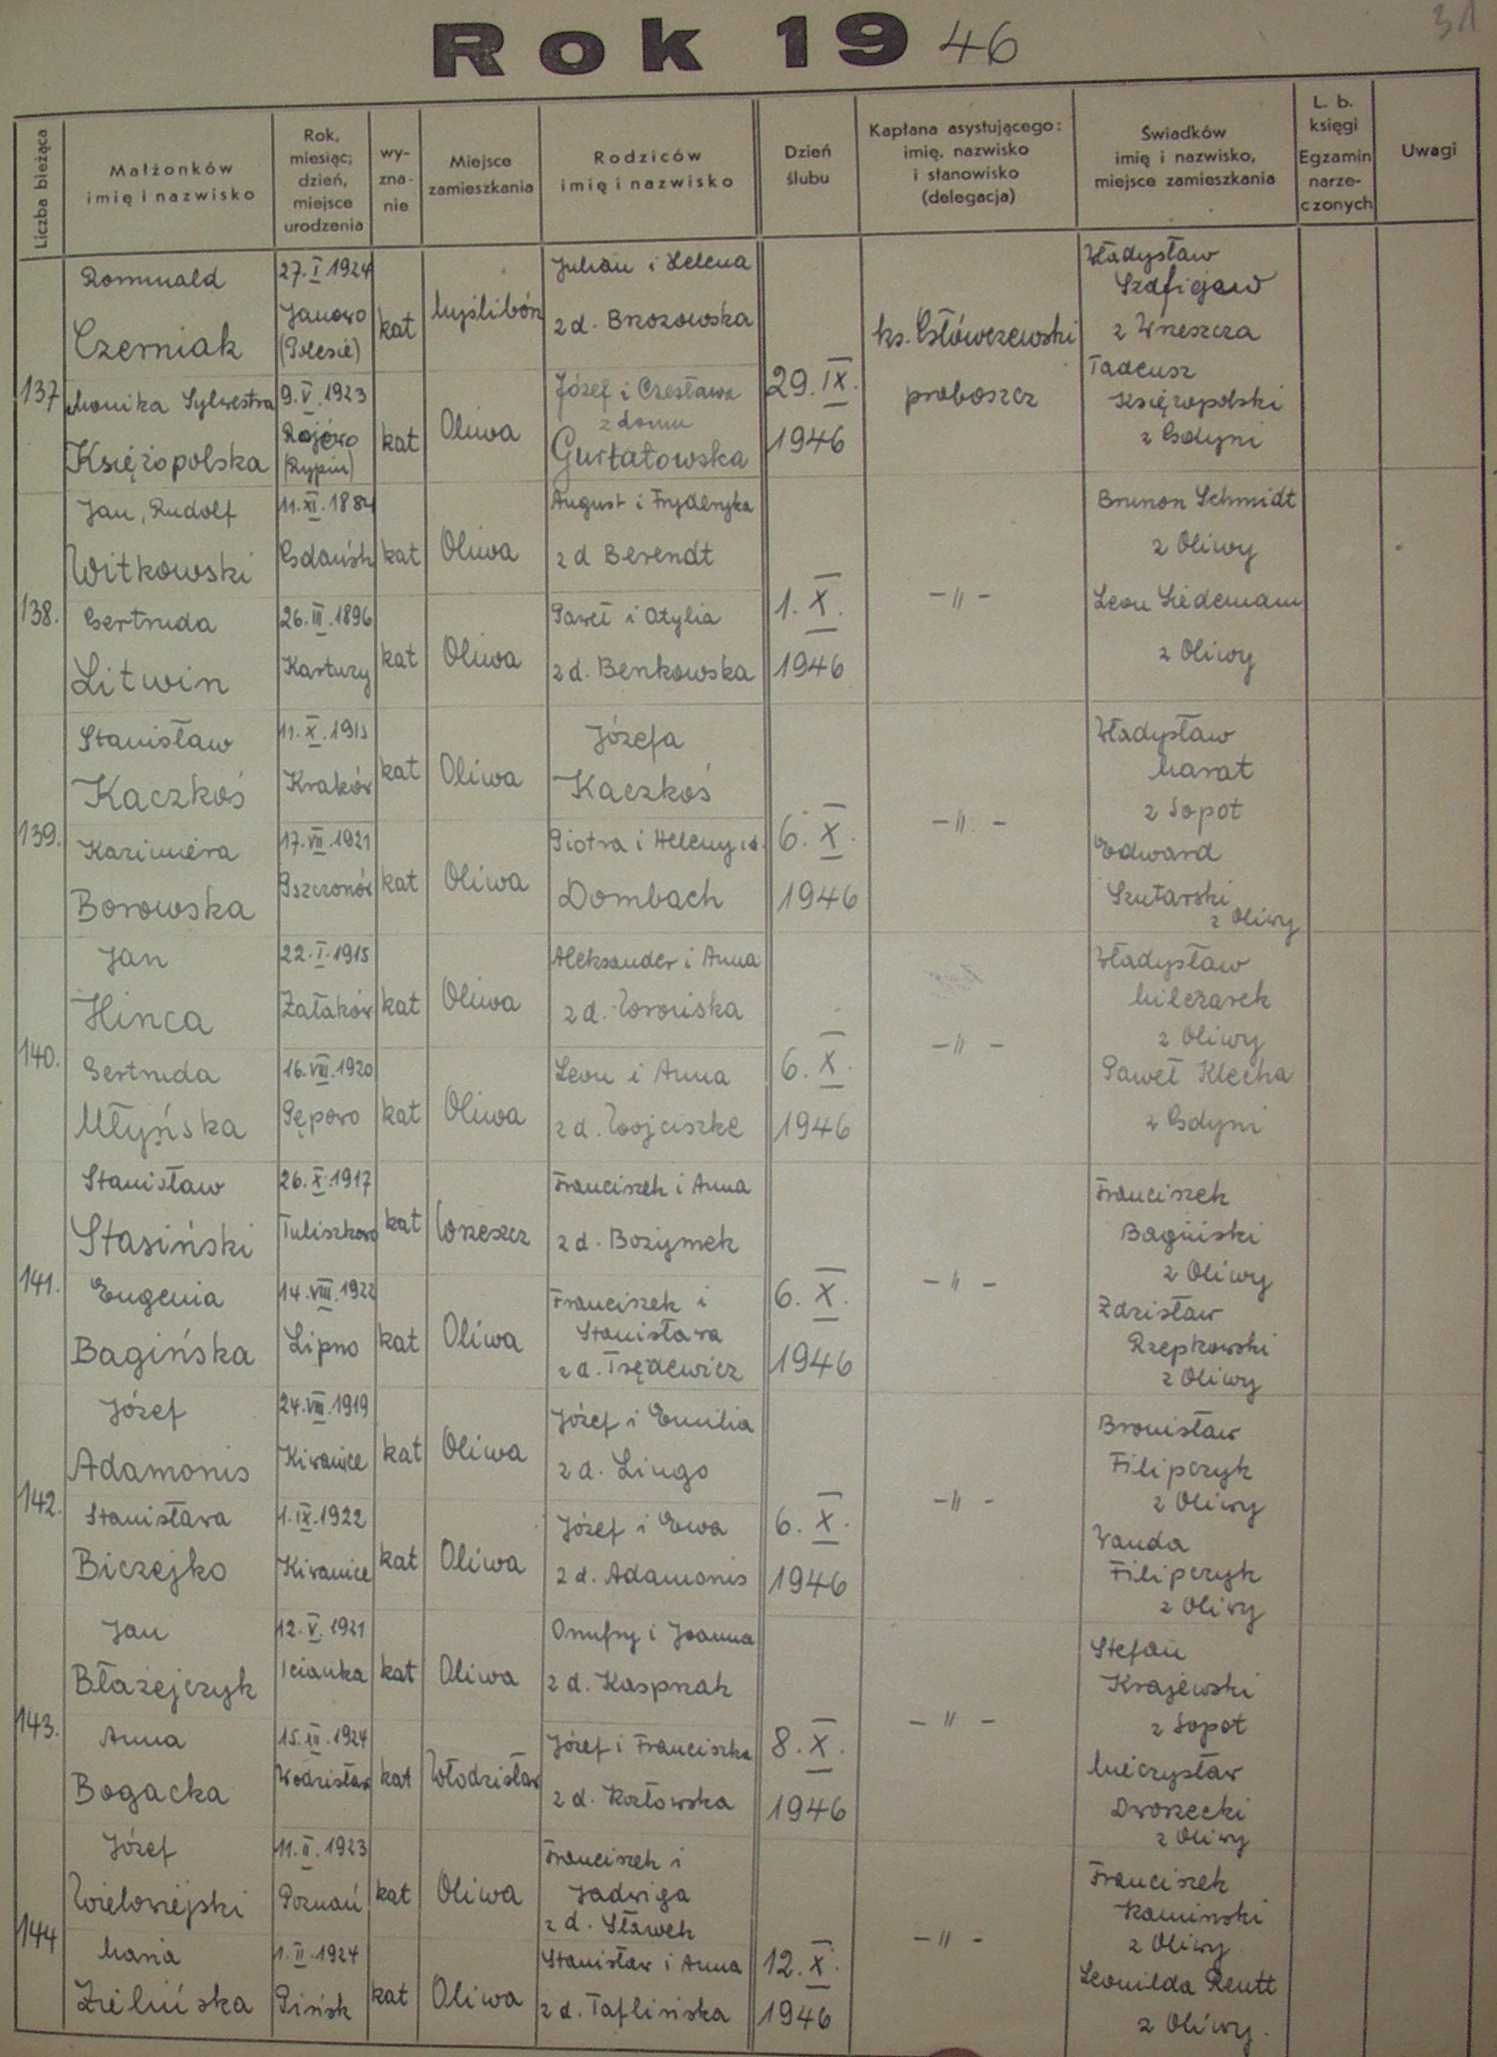 31
Rok 1946
Liczba bieżąca
Małżonków
imię i nazwisko
Rok,
miesiąc;
dzień,
miejsce
urodzenia
wy-
zna-
nie
Miejsce
zamieszkania
Rodziców
imię i nazwisko
Dzień
ślubu
Kapłana asystującego:
imię, nazwisko
i stanowisko
(delegacja)
Świadków
imię i nazwisko,
miejsce zamieszkania
L. b.
księgi
Egzamin
narze-
czonych
Uwagi
137
Romuald
Czerniak
27.I.1924
Janowo
(Polesie)
kat
Myślibór
Julian i Helena
z d. Brzozowska
Monika Sylwestra
Księżopolska
9.V.1923
(Rypin)
kat
Oliwa
Józef i Czesława
z domu
29.IX.
1946
ks. Główczewski
proboszcz
Władysław
z Wrzeszcza
Tadeusz
Księżopolski
z Gdyni
138.
Jan, Rudolf
Witkowski
11.XI.1884
Gdańsk
kat
Oliwa
August i Fryderyka
z d Berendt
Gertruda
Litwin
26.III.1896
Kartuzy
kat
Oliwa
Paweł i Otylia
z d. Benkowska
1.X.
1946
-"-
Brunon Schmidt
z Oliwy
Leon
z Oliwy
139.
Stanisław
Kaczkoś
11.X.1913
Kraków
kat
Oliwa
Józefa
Kaczkoś
Kazimiera
Borowska
17.VII.1921
Pszczonów
kat
Oliwa
Piotra i Heleny z d.
Dombach
6.X.
1946
-"-
Władysław
Marat
z Sopot
Edward
Szutarski
z Oliwy
140.
Jan
Hinca
22.I.1915
Załaków
kat
Oliwa
Aleksander i Anna
z d. Worońska
Gertruda
Młyńska
16.VIII.1920
Pępowo
kat
Oliwa
Leon i Anna
z d. Wojciszke
6.X.
1946
-"-
Władysław
Milczarek
z Oliwy
Paweł Klecha
z Gdyni
141.
Stanisław
Stasiński
26.X.1917
Tuliszkowo
kat
Wrzeszcz
Franciszek i Anna
z d. Bożymek
Eugenia
Bagińska
14.VIII.1922
Lipno
kat
Oliwa
Franciszek i
Stanisława
z d. Trędewicz
6.X.
1946
-"-
Franciszek
Bagiński
z Oliwy
Zdzisław
Rzepkowski
z Oliwy
142.
Józef
Adamonis
24.VIII.1919
kat
Oliwa
Józef i Emilia
z d. Lingo
Stanisława
Biczejko
1.IX.1922
kat
Oliwa
Józef i Ewa
z d. Adamonis
6.X.
1946
-"-
Bronisław
Filipczyk
z Oliwy
Wanda
Filipczyk
z Oliwy
143.
Jan
Błażejczyk
12.V.1921
Icianka
kat
Oliwa
Onufry i Joanna
z d. Kasprzak
Anna
Bogacka
15.XII.1924
Wodzisław
kat
Włodzisław
Józef i Franciszka
z d. Kozłowska
8.X.
1946
-"-
Stefan
Krajewski
z Sopot
Mieczysław
Dworzecki
z Oliwy
144
Józef
Wielowiejski
11.II.1923
Poznań
kat
Oliwa
Franciszek i
Jadwiga
z d. Sławek
Maria
Zielińska
1.II.1924
Pińsk
kat
Oliwa
Stanisław i Anna
z d. Taflińska
12.X.
1946
-"-
Franciszek
Kamiński
z Oliwy
Leonilda Reutt
z Oliwy.